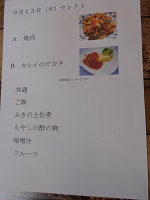 ９月１３日（木）セレクト
A　焼肉
B　カレイのピカタ
共通
ご飯
ふきの土佐煮
もやしの酢の物
味噌汁
フルーツ